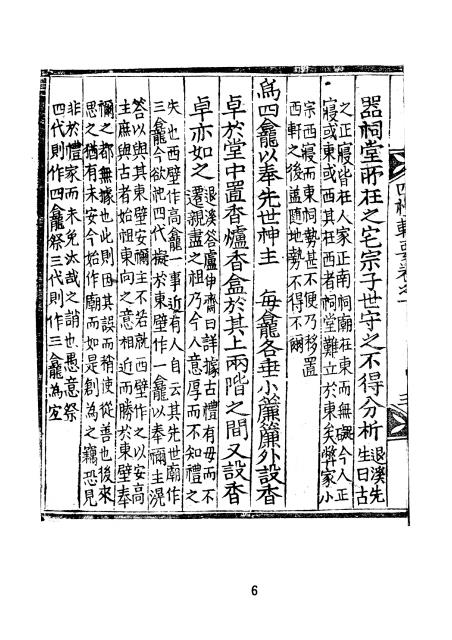 四禮輯要卷之一
三
器祠堂所在之宅宗子世守之不得分析退溪先
生曰古
之正寢皆在人家正南祠廟在東而無礙今人正
寢或東或西其在西者祠堂難立於東矣弊家小
宗西寢而東祠勢甚不便乃移置
西軒之後蓋隨地勢不得不爾
爲四龕以奉先世神主 每龕各垂小簾簾外設香
卓於堂中置香爐香盒於其上兩階之間又設香
卓亦如之退溪答盧伸齋曰詳據古禮有毋而不
遷親盡之祖乃今人意厚而不知禮之
失也西壁作高龕一事近有人自云其先世廟作
三龕今欲祀四代擬於東壁作一龕以奉禰主滉
答以與其東壁安禰主不若就西壁作之以安高
主庶與古者始祖東向之意相近而勝於東壁奉
禰之都無據也此則因其設而稍使從善也後來
思之猶有未安今始作廟而如是創為之竊恐見
非於禮家而未免汰哉之誚也愚意祭
四代則作四龕祭三代則作三龕為宜
6